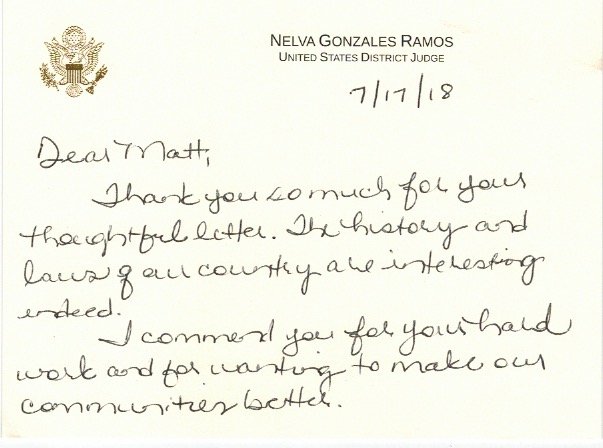 NELVA GONZALES RAMOS
UNITED STATES DISTRICT JUDGE
7/17/18
Dear Matt,
Thank you so much for your
thoughtful letter. The history and
laws of our country are interesting
indeed.
I commend you for your hard
work and for wanting to make our
communities better.